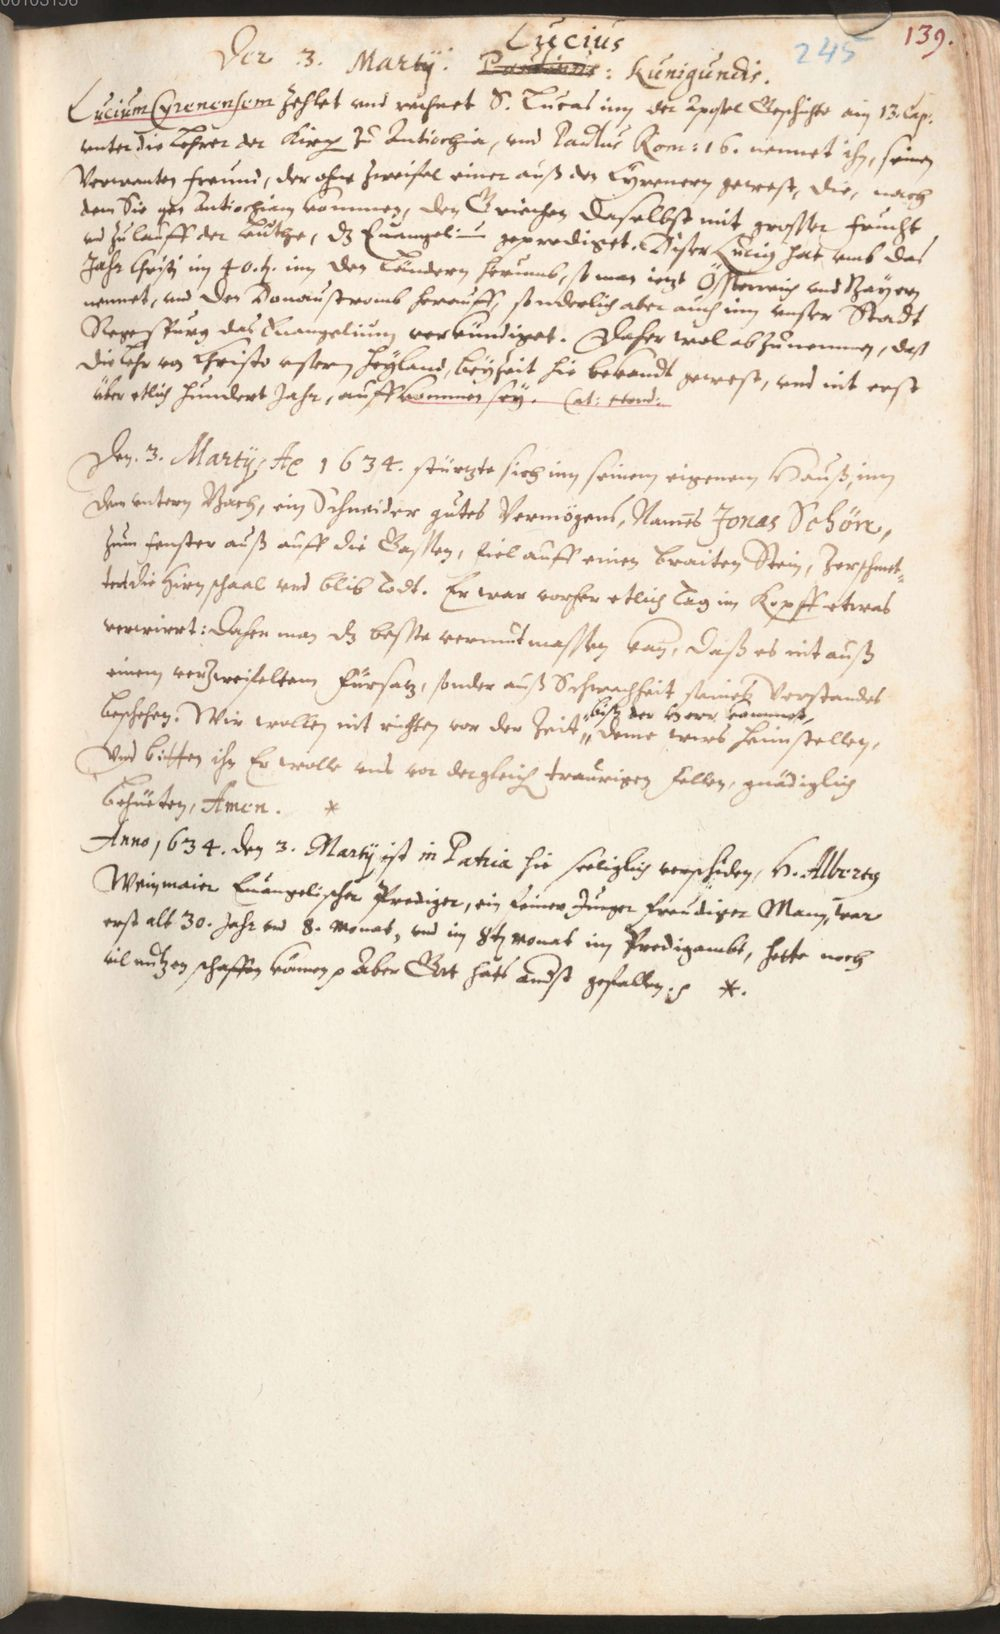 00103156
139.
245
Lucius
Der 3. Martÿ. : Kunigundis.
Lucium Cyrenensem zehlet vnd rechnet S. Lucas inn der Apostel Geschichte am 13. Cap.
vnter die Lehrer der Kirch zu Antiochia, vnd Paulus Rom: 16. nennet ihn, seinen
Verwanten freund, der ohne zweifel einer auß den Cyrenern gewest, die, nach
dem Sie gen Antiochiam kommen, den Griechen daselbst mit grosser frucht
vnd zulauff der Leuthe, dz Euangelium geprediget. Diser Lucius hat vmb das
Jahr Christi im 40.t. inn den Ländern herumb, so man ietzt Österreich vnd Bayern
nennet, vnd den Donaustromb herauff, sonderlich aber auch inn vnser Stadt
Regenspurg das Euangelium verkündiget. Daher wol abzunemmen, daß
die Lehr von Christo vnserm Heyland, beÿzeit hie bekandt gewest, vnd nit erst
über etlich hundert Jahr, auffkommen seÿ. Cal:
Den. 3. Martÿ, Ao 1634. stürtzte sich inn seinem eigenem Hauß, inn
dem vntern Bach, ein Schneider gutes Vermögens, Namens Jonas Schörr,
zum fenster auß auff die Gassen, fiel auff einen braiten Stein, zerschmet-
tert die Hirnschaal vnd blib todt. Er war vorher etlich Tag im Kopff etwas
verwirrt: Daher man dz beste vermutmassen kan, daß es nit auß
einem verzweifeltem fürsatz, sonder auß Schwachheit seines Verstandes
bescheehen. Wir wollen nit richten vor der Zeit, biß der Herr kommet,
deme wirs heimstellen,
Vnd bitten ihn Er wolle vns vor dergleich traurigen fellen, gnädiglich
behüeten, Amen. *
Anno 1634. den 3. Martÿ ist in Patria hie seeliglich verschiden, H. Albrecht
Weinmaier Euangelischer Prediger, ein feiner Junger freudiger Mann, war
erst alt 30. Jahr vnd 8. Monat, vnd im 8t Monat im Predigambt, hette noch
vil nutzen schaffen können, Aber Gott hats anderst gefallen. *.